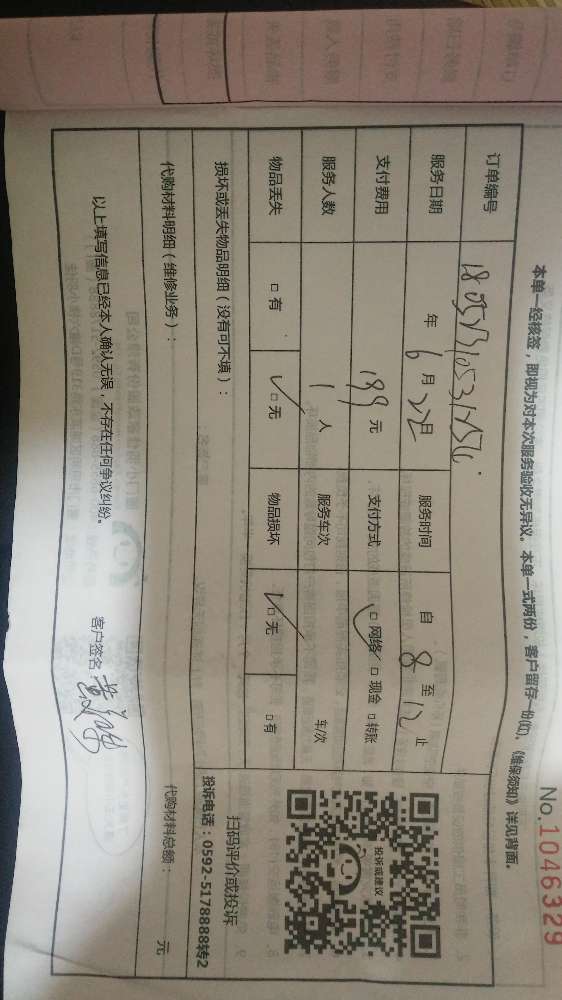 No.1046329
本单一经核签，即视为对本次服务验收无异议。本单一式两份，客户留存一份(红)。《维保须知》详见背面。
订单编号
服务日期 年 6 月 22 日 服务时间 自 8 至 12 止
支付费用 199 元 支付方式 网络 现金 转账
服务人数 1 人 服务车次 车/次
物品丢失 有 无 物品损坏 无 有
损坏或丢失物品明细（没有可不填）：
投诉或建议
扫码评价或投诉
投诉电话：0592-5178888转2
代购材料明细（维修业务）： 代购材料总额： 元
以上填写信息已经本人确认无误，不存在任何争议纠纷。 客户签名